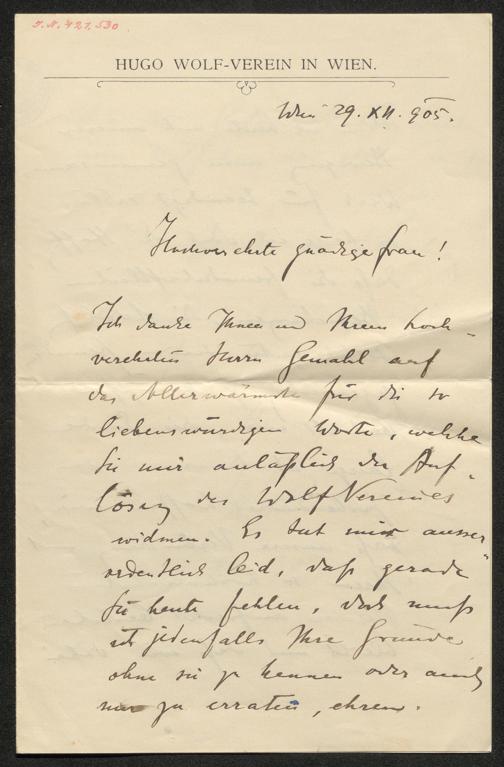 I.N. 421,530
HUGO WOLF-VEREIN IN WIEN.
Wien 29. XII. 905.
Hochverehrte gnädige Frau!
Ich danke Ihnen und Ihrem hoch-
verehrten Herrn Gemahl auf
das Allerwärmste für die so
liebenswürdigen Worte, welche
Sie mir anläßlich der Auf-
lösung des Wolf Vereines
widmen. Es tut mir ausser-
ordentlich leid, daß gerade
Sie heute fehlen, doch muß
ich jedenfalls Ihre Gründe
ohne sie zu kennen oder auch
nur zu erraten, ehren.